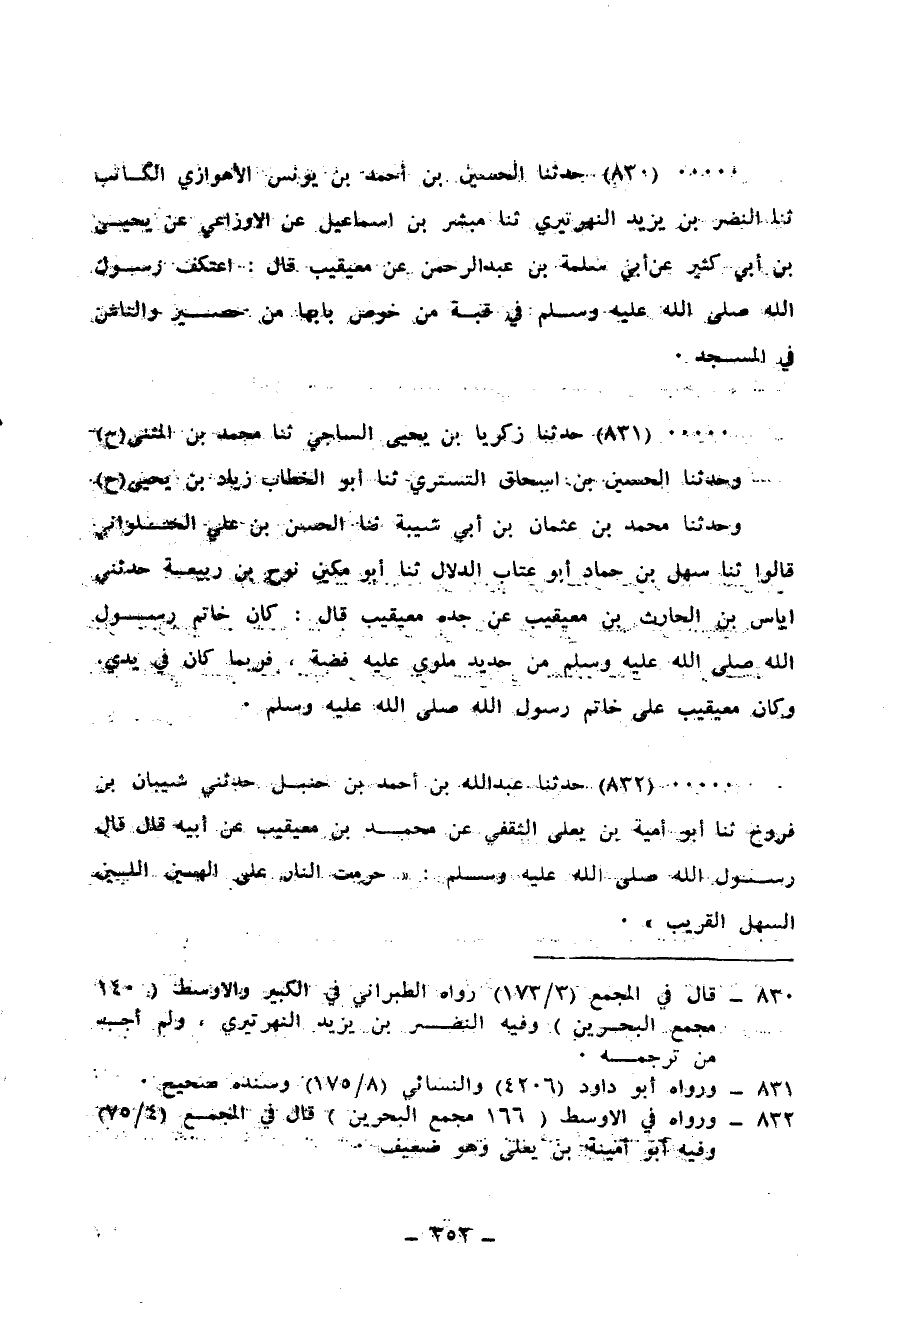 ٠٠٠٠٠ (٨٣٠) حدثنا الحسين بن أحمد بن يونس الأهوازي الكاتب
ثنا النضر بن يزيد النهرتيري ثنا مبشر بن اسماعيل عن الاوزاعي عن يحيى
بن أبي كثير عن أبي سلمة بن عبدالرحمن عن معيقيب قال : اعتكف رسول
الله صلى الله عليه وسلم في قبة من خوص بابها من حصير والناس
في المسجد ٠
٠٠٠٠٠ (٨٣١) حدثنا زكريا بن يحيى الساجي ثنا محمد بن المثنى (ح)
وحدثنا الحسين بن اسحاق التستري ثنا أبو الخطاب زياد بن يحيى (ح)
وحدثنا محمد بن عثمان بن أبي شيبة ثنا الحسن بن علي الحلواني
قالوا ثنا سهل بن حماد أبو عتاب الدلال ثنا أبو مكين نوح بن ربيعة حدثني
اياس بن الحارث بن معيقيب عن جده معيقيب قال : كان خاتم رسول
الله صلى الله عليه وسلم من حديد ملوي عليه فضة ، فربما كان في يدي.
وكان معيقيب على خاتم رسول الله صلى الله عليه وسلم ٠
٠٠٠٠٠٠ (٨٣٢) حدثنا عبدالله بن أحمد بن حنبل حدثني شيبان بن
فروخ ثنا أبو أمية بن يعلى الثقفي عن محمد بن معيقيب عن أبيه قال قال
رسول الله صلى الله عليه وسلم : « حرمت النار على الهين اللين
السهل القريب » ٠
٨٣٠ ـ قال في المجمع (١٧٣/٣) رواه الطبراني في الكبير والاوسط ( ١٤٠
مجمع البحرين ) وفيه النضر بن يزيد النهرتيري ، ولم أجد
من ترجمه ٠
٨٣١ ـ ورواه أبو داود (٤٢٠٦) والنسائي (١٧٥/٨) وسنده صحيح ٠
٨٣٢ ـ ورواه في الاوسط ( ١٦٦ مجمع البحرين ) قال في المجمع (٧٥/٤)
وفيه أبو أمينة بن يعلى وهو ضعيف ٠
ـ ٣٥٢ ـ